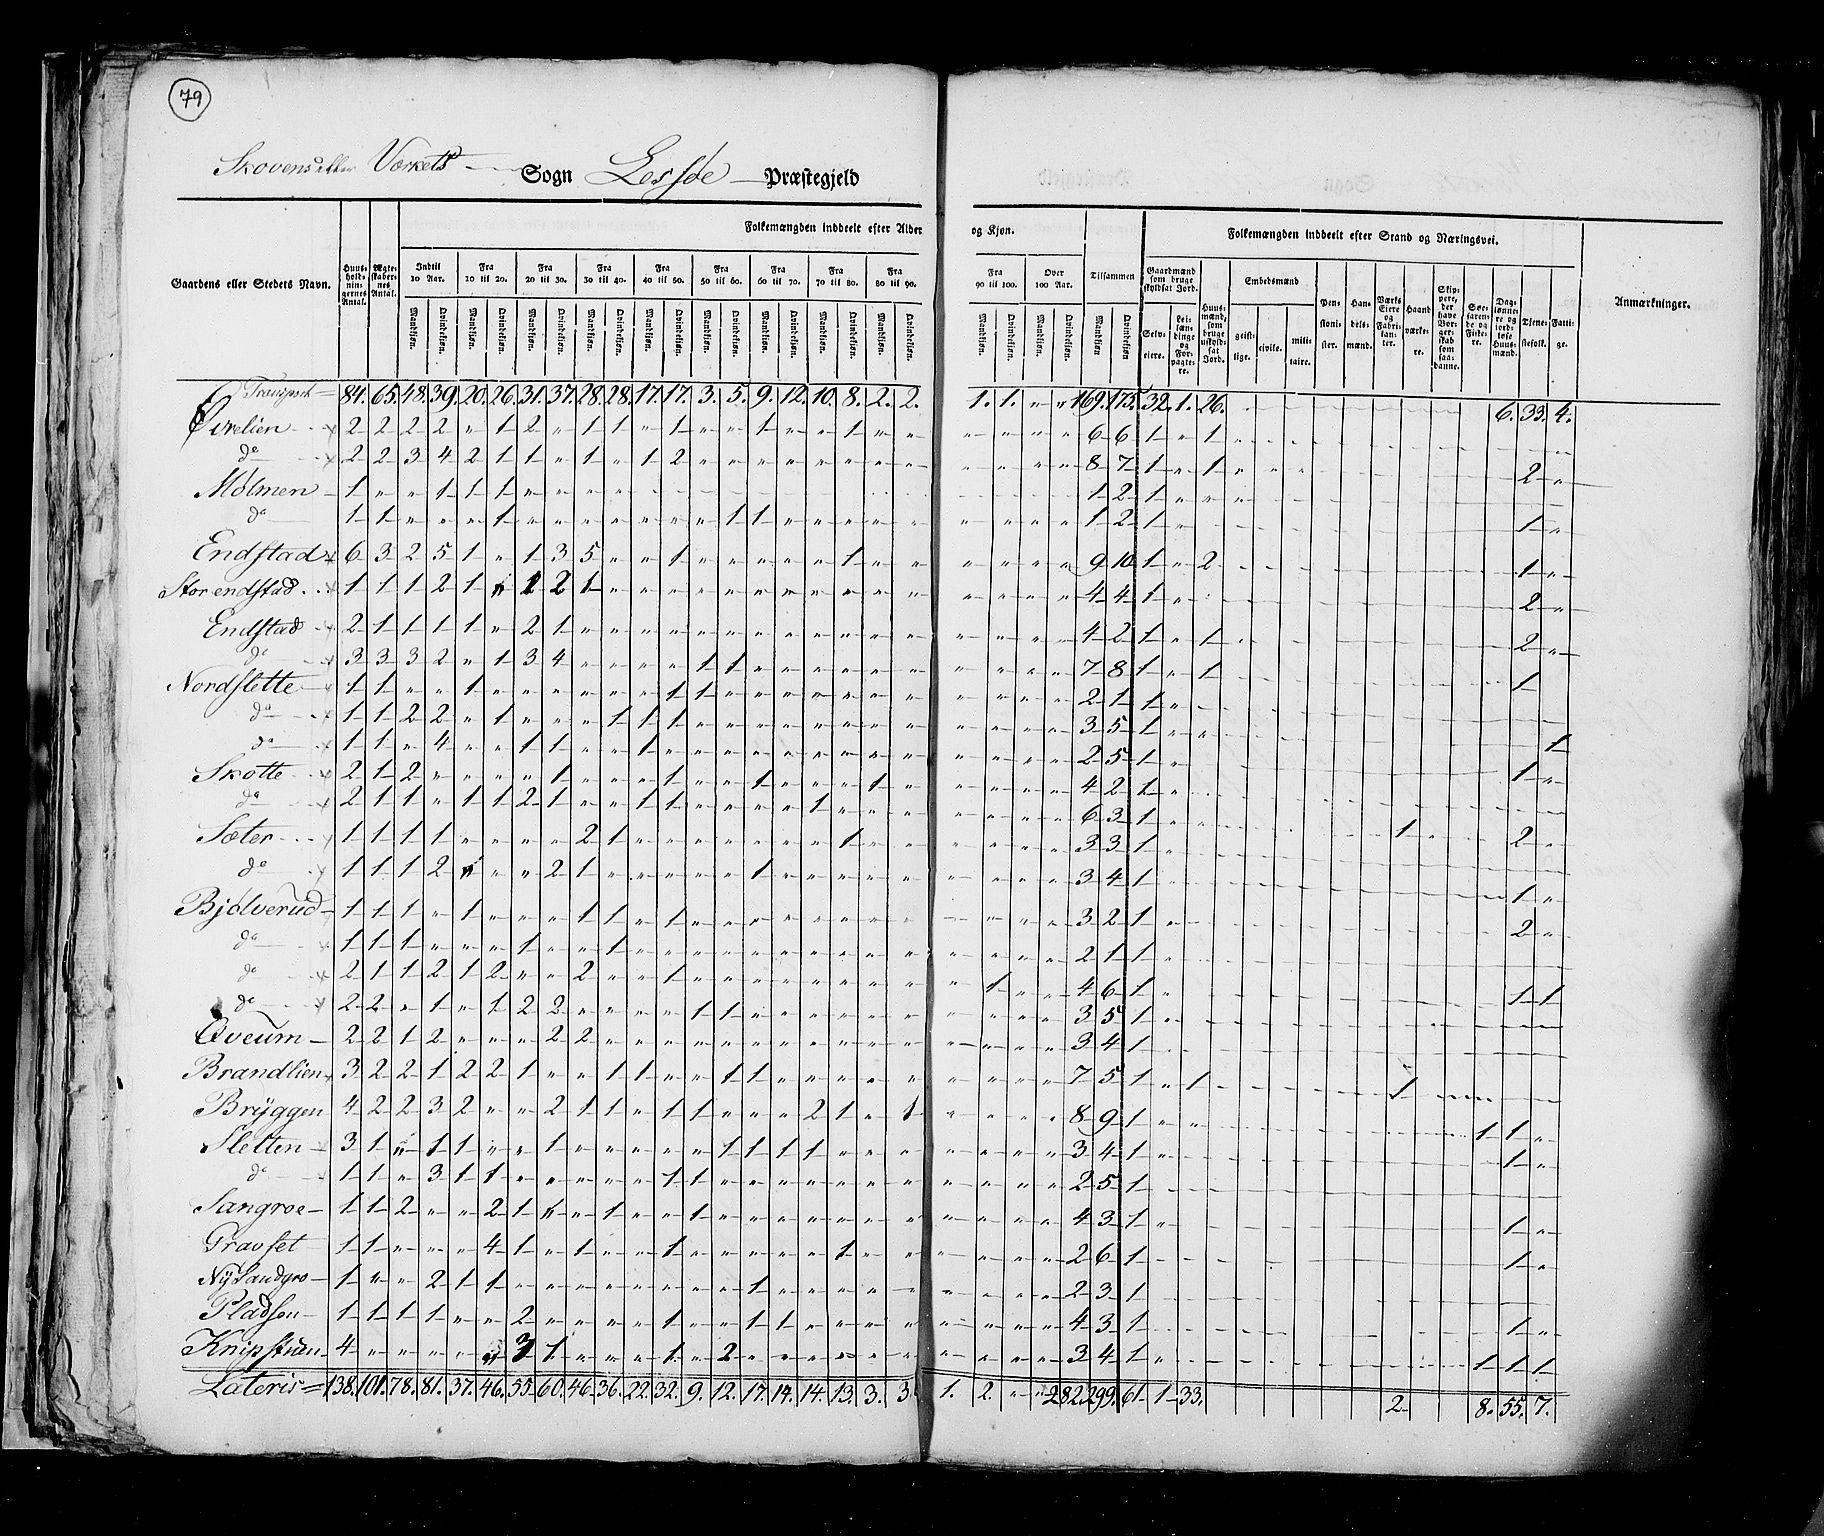 79
Skovens eller Værkets Sogn Lessøe Præstegjeld
Folkemængden inddeelt efter Alder og Kjøn. Folkemængden inddeelt efter Stand og Næringsvei.
Gaardens eller Stedets Navn. Huusholdningernes Antal. Ægteskabernes Antal. Indtil 10 Aar. Fra 10 til 20. Fra 20 til 30. Fra 30 til 40. Fra 40 til 50. Fra 50 til 60. Fra 60 til 70. Fra 70 til 80. Fra 80 til 90. Fra 90 til 100. Over 100 Aar. Tilsammen Gaardmænd som bruge skyldsat Jord. Huusmænd, som bruge uskyldsat Jord. Embedsmænd Pensionister. Handelsmænd. Værks Eiere og Fabrikanter. Haandværkere. Skippere, der have Borgerskab som saadanne. Søefarende og Fiskere. Dagslønnere og jordløse Huusmænd. Tjenestefolk. Fattige. Anmærkninger.
Mandkjøn. Qvindekjøn. Mandkjøn. Qvindekjøn. Mandkjøn. Qvindekjøn. Mandkjøn. Qvindekjøn. Mandkjøn. Qvindekjøn. Mandkjøn. Qvindekjøn. Mandkjøn. Qvindekjøn. Mandkjøn. Qvindekjøn. Mandkjøn. Qvindekjøn. Mandkjøn. Qvindekjøn. Mandkjøn. Qvindekjøn. Mandkjøn Qvindekjøn Selveiere. Leilændinge og Forpagtere. geistlige. civile. militaire.
Transport = 84. 65. 48. 39. 20. 26. 31. 37. 28. 28. 17. 17. 3. 5. 9. 12. 10. 8. 2. 2. 1. 1. " " 169. 175. 32. 1. 26. 6. 33. 4.
Øvrelien 2 2 2 2 " 1 2 " 1 1 " 1 " " 1 " " 1 " " " " " " 6 6 1 " 1
do 2 2 3 4 2 1 1 " 1 " 1 2 " " " " " " " " " " " " 8 7 1 " 1 2 "
Mølmen 1 " " 1 1 1 " 1 2 1
do 1 1 " " " 1 " " " " " " " 1 1 " " " " " " " " " 1 2 1 " 1 "
Endstad 6 3 2 5 1 " 1 3 5 " " 1 " " " " " 1 " " " " " " 9 10 1 " 2 1 "
Storendstad 1 1 1 2 1 " 1 2 1 " " " " " " " " " " " " " " " 4 4 1 " 2 "
Endstad 2 1 1 1 1 " 2 1 " " " " " " " " " " " " " " " " 4 2 1 " 1 2 "
do 3 3 3 2 " 1 3 4 " " " " 1 1 " " " " " " " " " " 7 8 1 " 1 1
Nordslette 1 1 " " 1 " " " " " " 1 1 " " " " " " " " " " " 2 1 1 "
do 1 1 2 2 " 1 " " " 1 1 1 " " " " " " " " " " " " 3 5 1 " 1
do 1 1 " 4 " " 1 1 " " 1 " " " " " " " " " " " " " 2 5 1 " 1 "
Skotte 2 1 2 " " " " 1 " " " 1 " " 1 " " " 1 " " " " " 4 2 1 "
do 2 1 1 " 1 1 2 1 " " 1 1 " " " " 1 " " " " " " " 6 3 1 1 2 "
Sæter 1 1 1 1 " " " " 2 1 " " " " " " " 1 " " " " " " 3 3 1
do 1 1 1 2 " " " 2 1 " " " " " 1 " " " " " " " " " 3 4 1 1 "
Bjølverud 1 1 1 " 1 " " " 1 1 " 1 " " " " " " " " " " " " 3 2 1 2 "
do 1 1 1 " " " 1 " " 1 " " " " " " " " " " " " " " 2 1 1
do 2 1 1 2 1 2 " " 2 " " 1 " " " " " " " " " 1 " " 4 6 1 " 1 1
do 2 2 " 1 " 1 2 2 " " " " 1 1 " " " " " " " " " " 3 5 1
Øveum 2 2 1 2 " " " 2 2 " " " " " " " " " " " " " " " 3 4 1
Brandlien 3 2 2 1 2 2 1 " " 1 1 " " 1 1 " " " " " " " " " 7 5 1 " 1 1
Brÿggen 4 2 2 3 2 " " 2 1 1 " 1 1 " " " 2 1 " 1 " " " " 8 9 1 1 1 "
Sletten 3 1 " 1 1 " " 1 " " " " " 1 1 1 1 " " " " " " " 3 4 1 1 "
do 1 1 " 3 1 1 " " " " " 1 1 " " " " " " " " " " " 2 5 1
Sangroe 1 1 2 " " 2 1 " " 1 " " 1 " " " " " " " " " " " 4 3 1 " 1 "
Gravset 1 1 " " " 4 1 " 1 " " 1 " " " " " 1 " " " " " " 2 6 1 1 "
Nÿ Sandgro 1 " " 2 1 1 " " " " " " " " 1 " " " " " " " " " 2 3 1
Pladsen 1 1 1 1 " " 2 " " " " 1 " " 1 1 " " " " " " " " 4 3 1 1 "
Knipstuen 4 " " " " " 3 1 " " " 1 " 2 " " " " " " " " " " 3 4 1 " 1 1 1
Lateris = 138. 101. 78. 81. 37. 46. 55. 60. 46. 36. 22. 32. 9. 12. 17. 14. 14. 13. 3. 3. 1. 2. " " 282. 299. 61. 1 33. 2. 8. 55. 7.